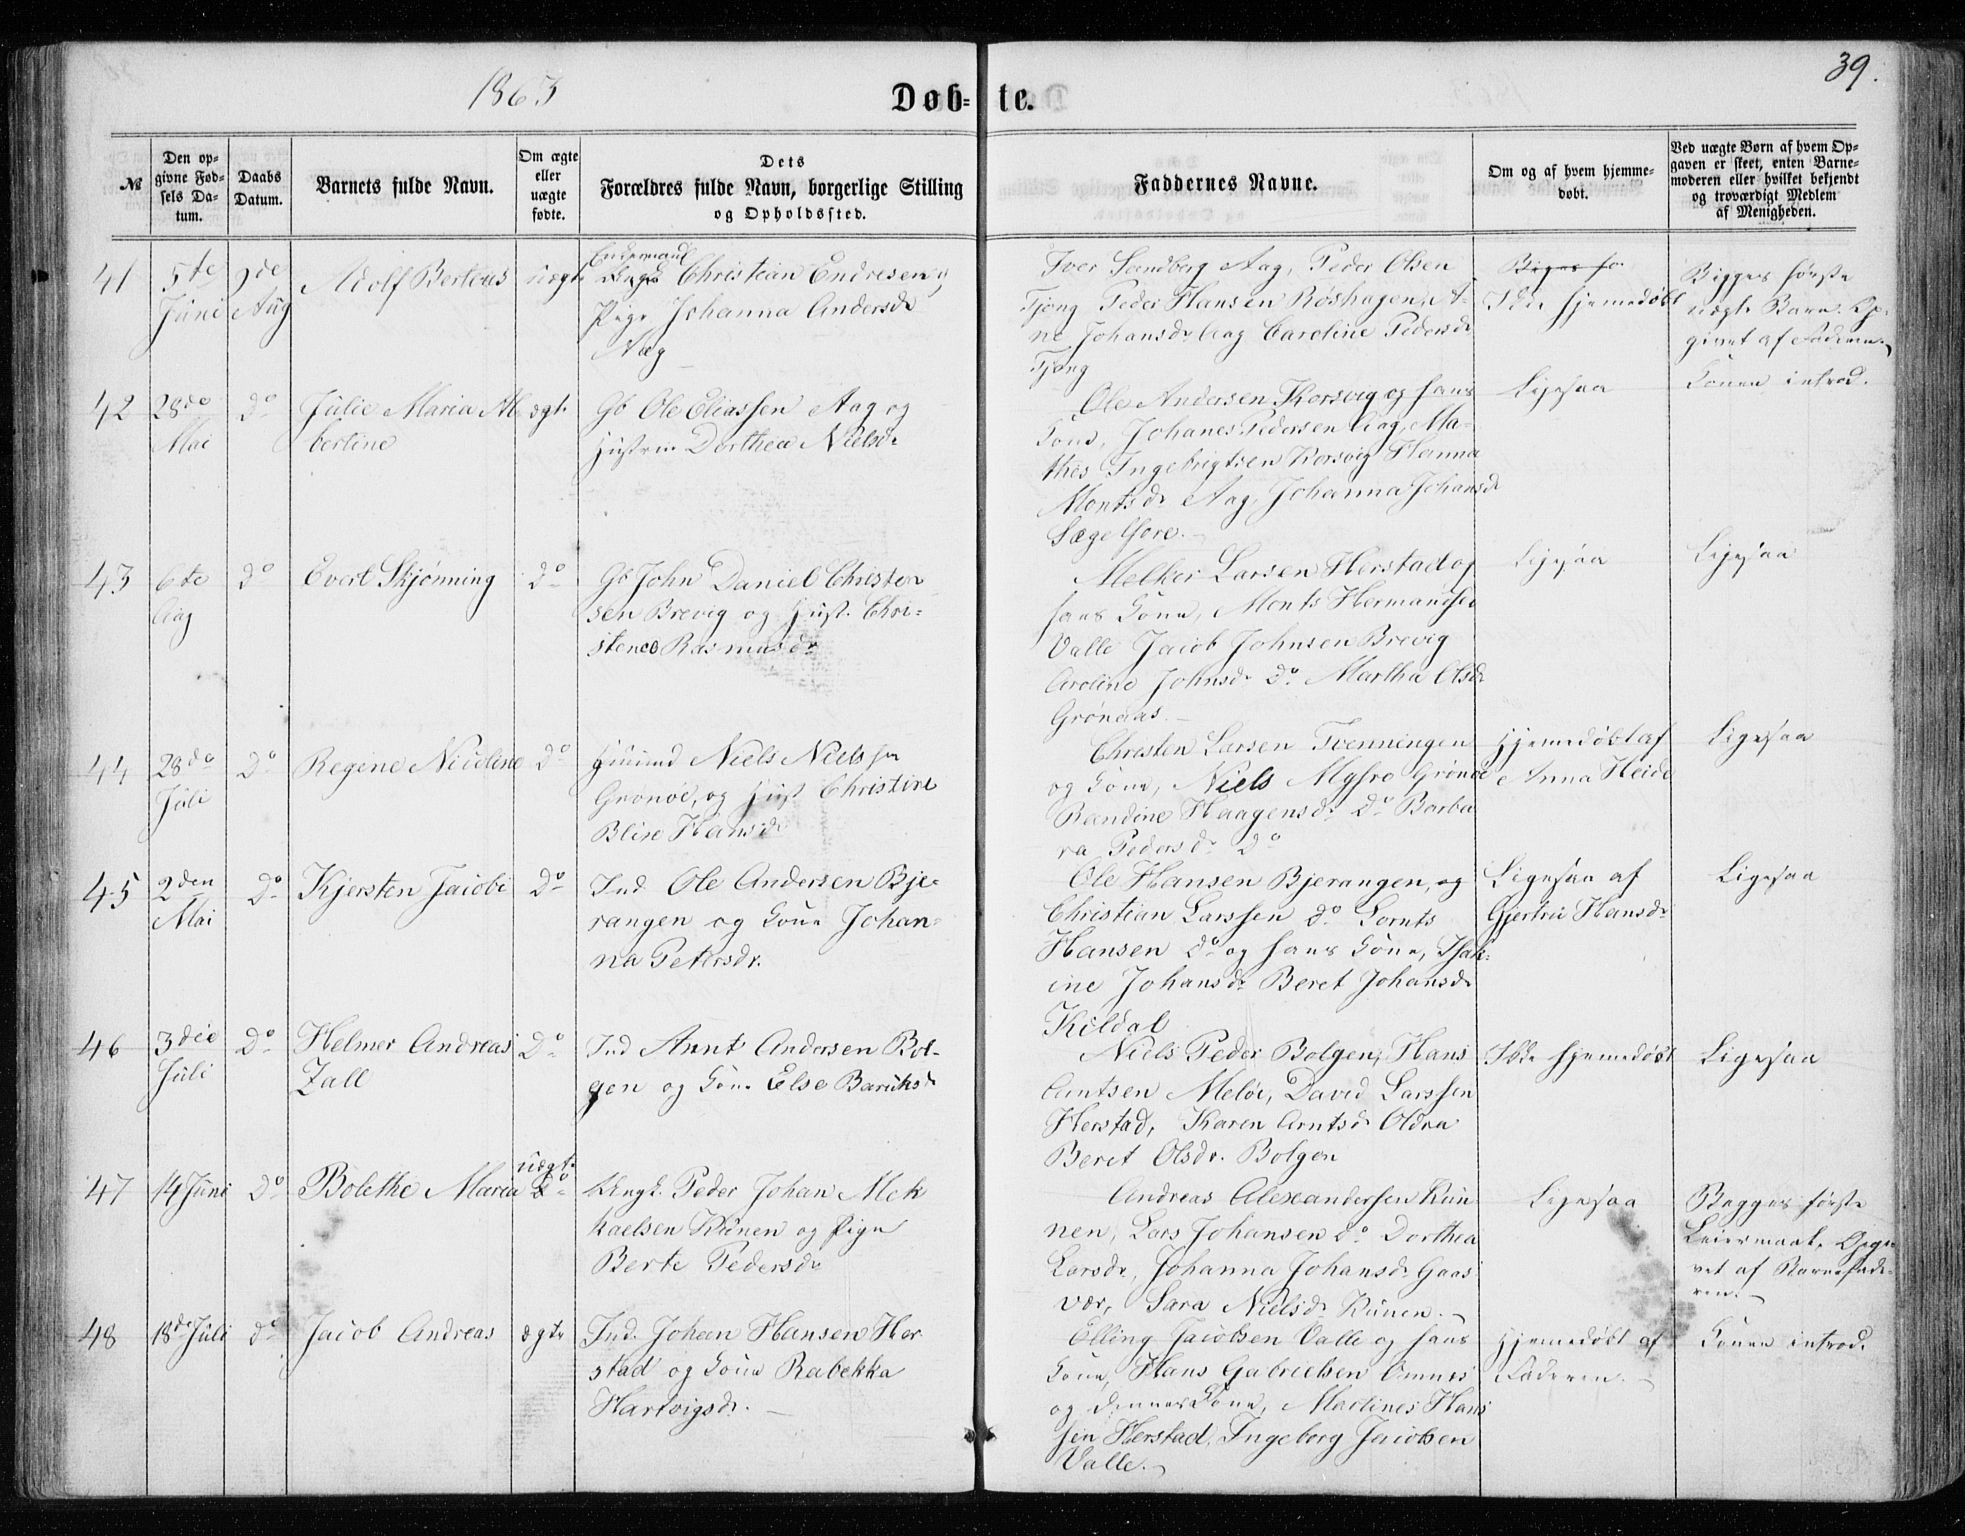 39.
1863
Døb- te.
№
Den op-
givne Fød-
sels Da-
tum.
Daabs
Datum.
Barnets fulde Navn.
Om ægte
eller
uægte
fødte.
Dets
Forældres fulde Navn, borgerlige Stilling
og Opholdssted.
Faddernes Navne.
Om og af hvem hjemme-
døbt.
Ved uægte Børn af hvem Op-
gaven er skeet, enten Barne-
moderen eller hvilket bekjendt
og troværdigt Medlem
af Menigheden.
41
5te
Juni
9de
Aug
Adolf Berteus
uægte
Christian Endresen og
Pige Johanna Andersdr
Aag
Iver Sandberg Aag, Peder Olsen
Tjong Peder Hansen Røshagen, A-
ne Johansdr Aag Caroline Pedersdr
Tjong
Ikke hjemedøbt
Begges første
uægte Barn. Op-
givet af Faderen.
42
28de
Mai
Do
Julie Maria Al
bertine
ægte
Gb Ole Eliassen Aag og
Hustru Dorthea Nielsdr
Ole Andersen Korsvig og hans
Kone, Johanes Pedersen Aag, Ma-
thes Ingebrigtsen Korsvig Hanna
Montsdr Aag, Johanna Johansdr
Sægelfore.
Ligesaa
Konen introd.
43
6te
Aug
Do
Evert Skjønning
Do
Gb John Daniel Christen
sen Brevig og Hust. Chri-
stence Rasmusdr
Melker Larsen Herstad og
hans Kone, Monts Hermandsen
Valle Jacob Johnsen Brevig
Caroline Johnsdr Do Martha Olsdr
Grønaas.
Ligesaa
Ligesaa
44
28de
Juli
Do
Regine Nicoline
Do
Huusmd Niels Nielssen
Grønøe, og Hust Christine
Blise Hansdr
Christen Larsen Tvenningen
og Kone, Niels Grønøe
Randine Haagensdr Do Barba
ra Pedersdr Do
Hjemedøbt af
Anna Heide
Ligesaa
45
2den
Mai
Do
Kjersten Jacobe
Do
Ind Ole Andersen Bje-
rangen og Kone Johan-
na Petersdr.
Ole Hansen Bjerangen, og
Christian Larssen do Lornts
Hansen do og hans Kone, Isak-
ine Johansdr Beret Johansdr
Kildal
Ligesaa af
Gjertru Hansdr
Ligesaa
46
3die
Juli
Do
Helmer Andreas
Zall
Do
Ind Arnt Andersen Bol-
gen og Kone Else Baruksdr
Niels Peder Bolgen, Hans
Arntsen Meløe, David Larssen
Herstad, Karen Arntsdr Oldra
Beret Olsdr. Bolgen
Ikke hjemedøbt
Ligesaa
47
14 Juni
Do
Bolethe Maria
uægte
Do
Ungk. Peder Johan Mek
kaelsen Kunen og Pige
Berte Pedersdr
Andreas Alexandersen Kun
nen, Lars Johansen do Dorthea
Larsdr, Johanna Johansdr Gaas
vær, Sara Nielsdr Kunen.
Ligesaa
Begges første
Leiermaal. Opgi-
vet af Barnefade-
ren.
48
18de Juli
do
Jacob Andreas
ægte
Ind. Johan Hansen Her-
stad og Kone Rabekka
Hartvigsdr.
Elling Jacobsen Valle og hans
Kone, Hans Gabrielsen Ømnes
og dennes Kone, Martines Hans
sen Herstad, Ingeborg Jacobsen
Valle.
Hjemedøbt af
Faderen.
Konen introd.